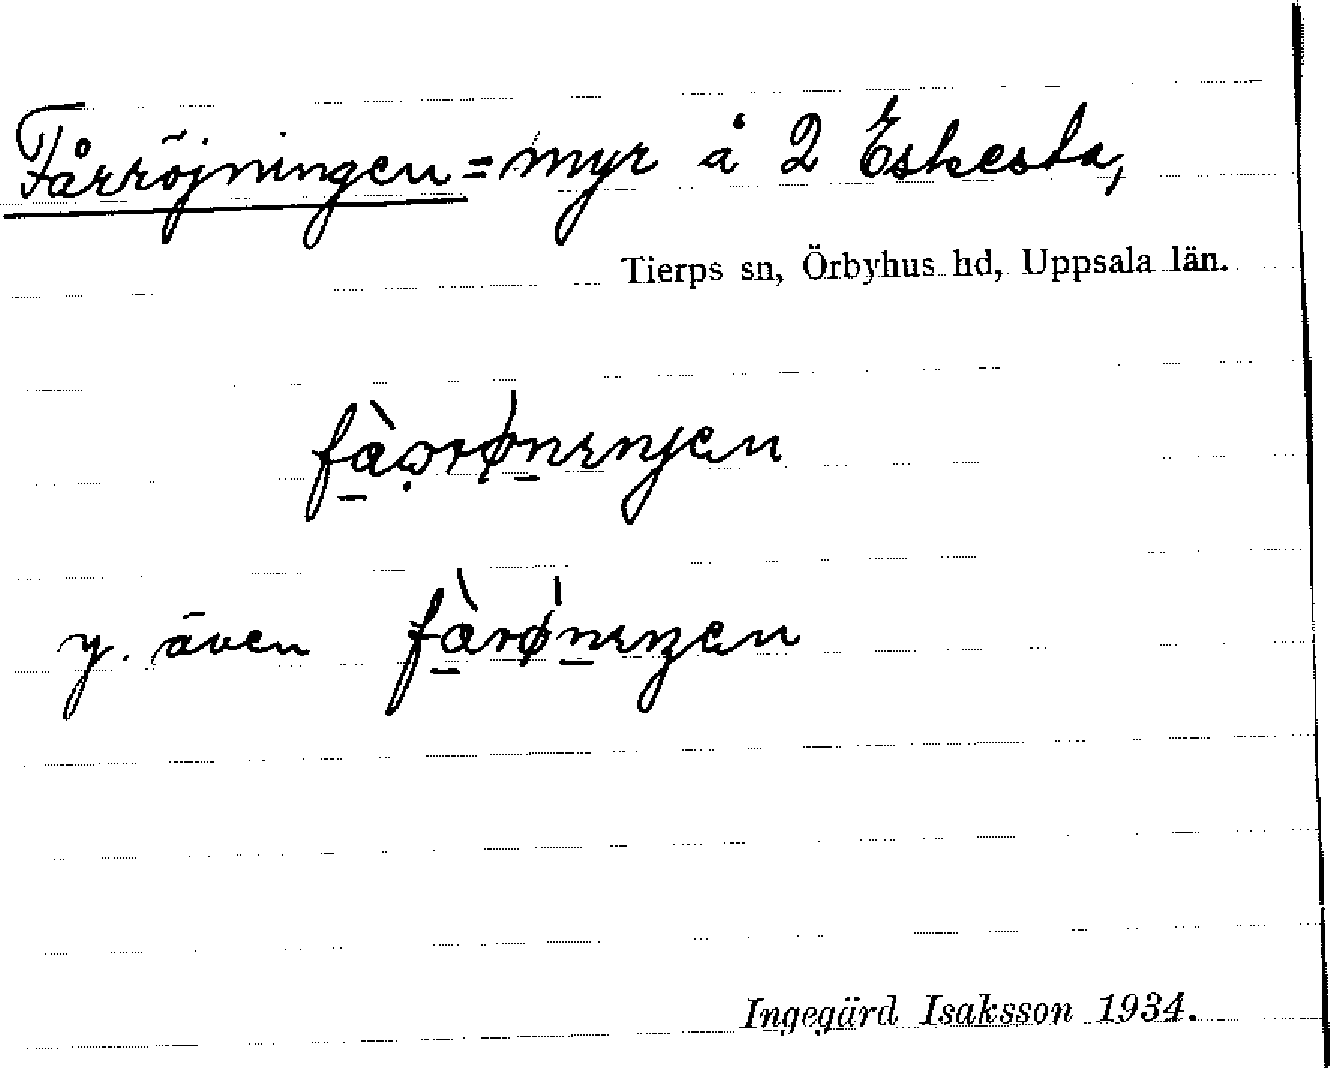 Fårröjningen = myr å 2 Eskesta,
Tierps sn, Örbyhus hd, Uppsala län.
y. även
Ingegärd Isaksson 1934.